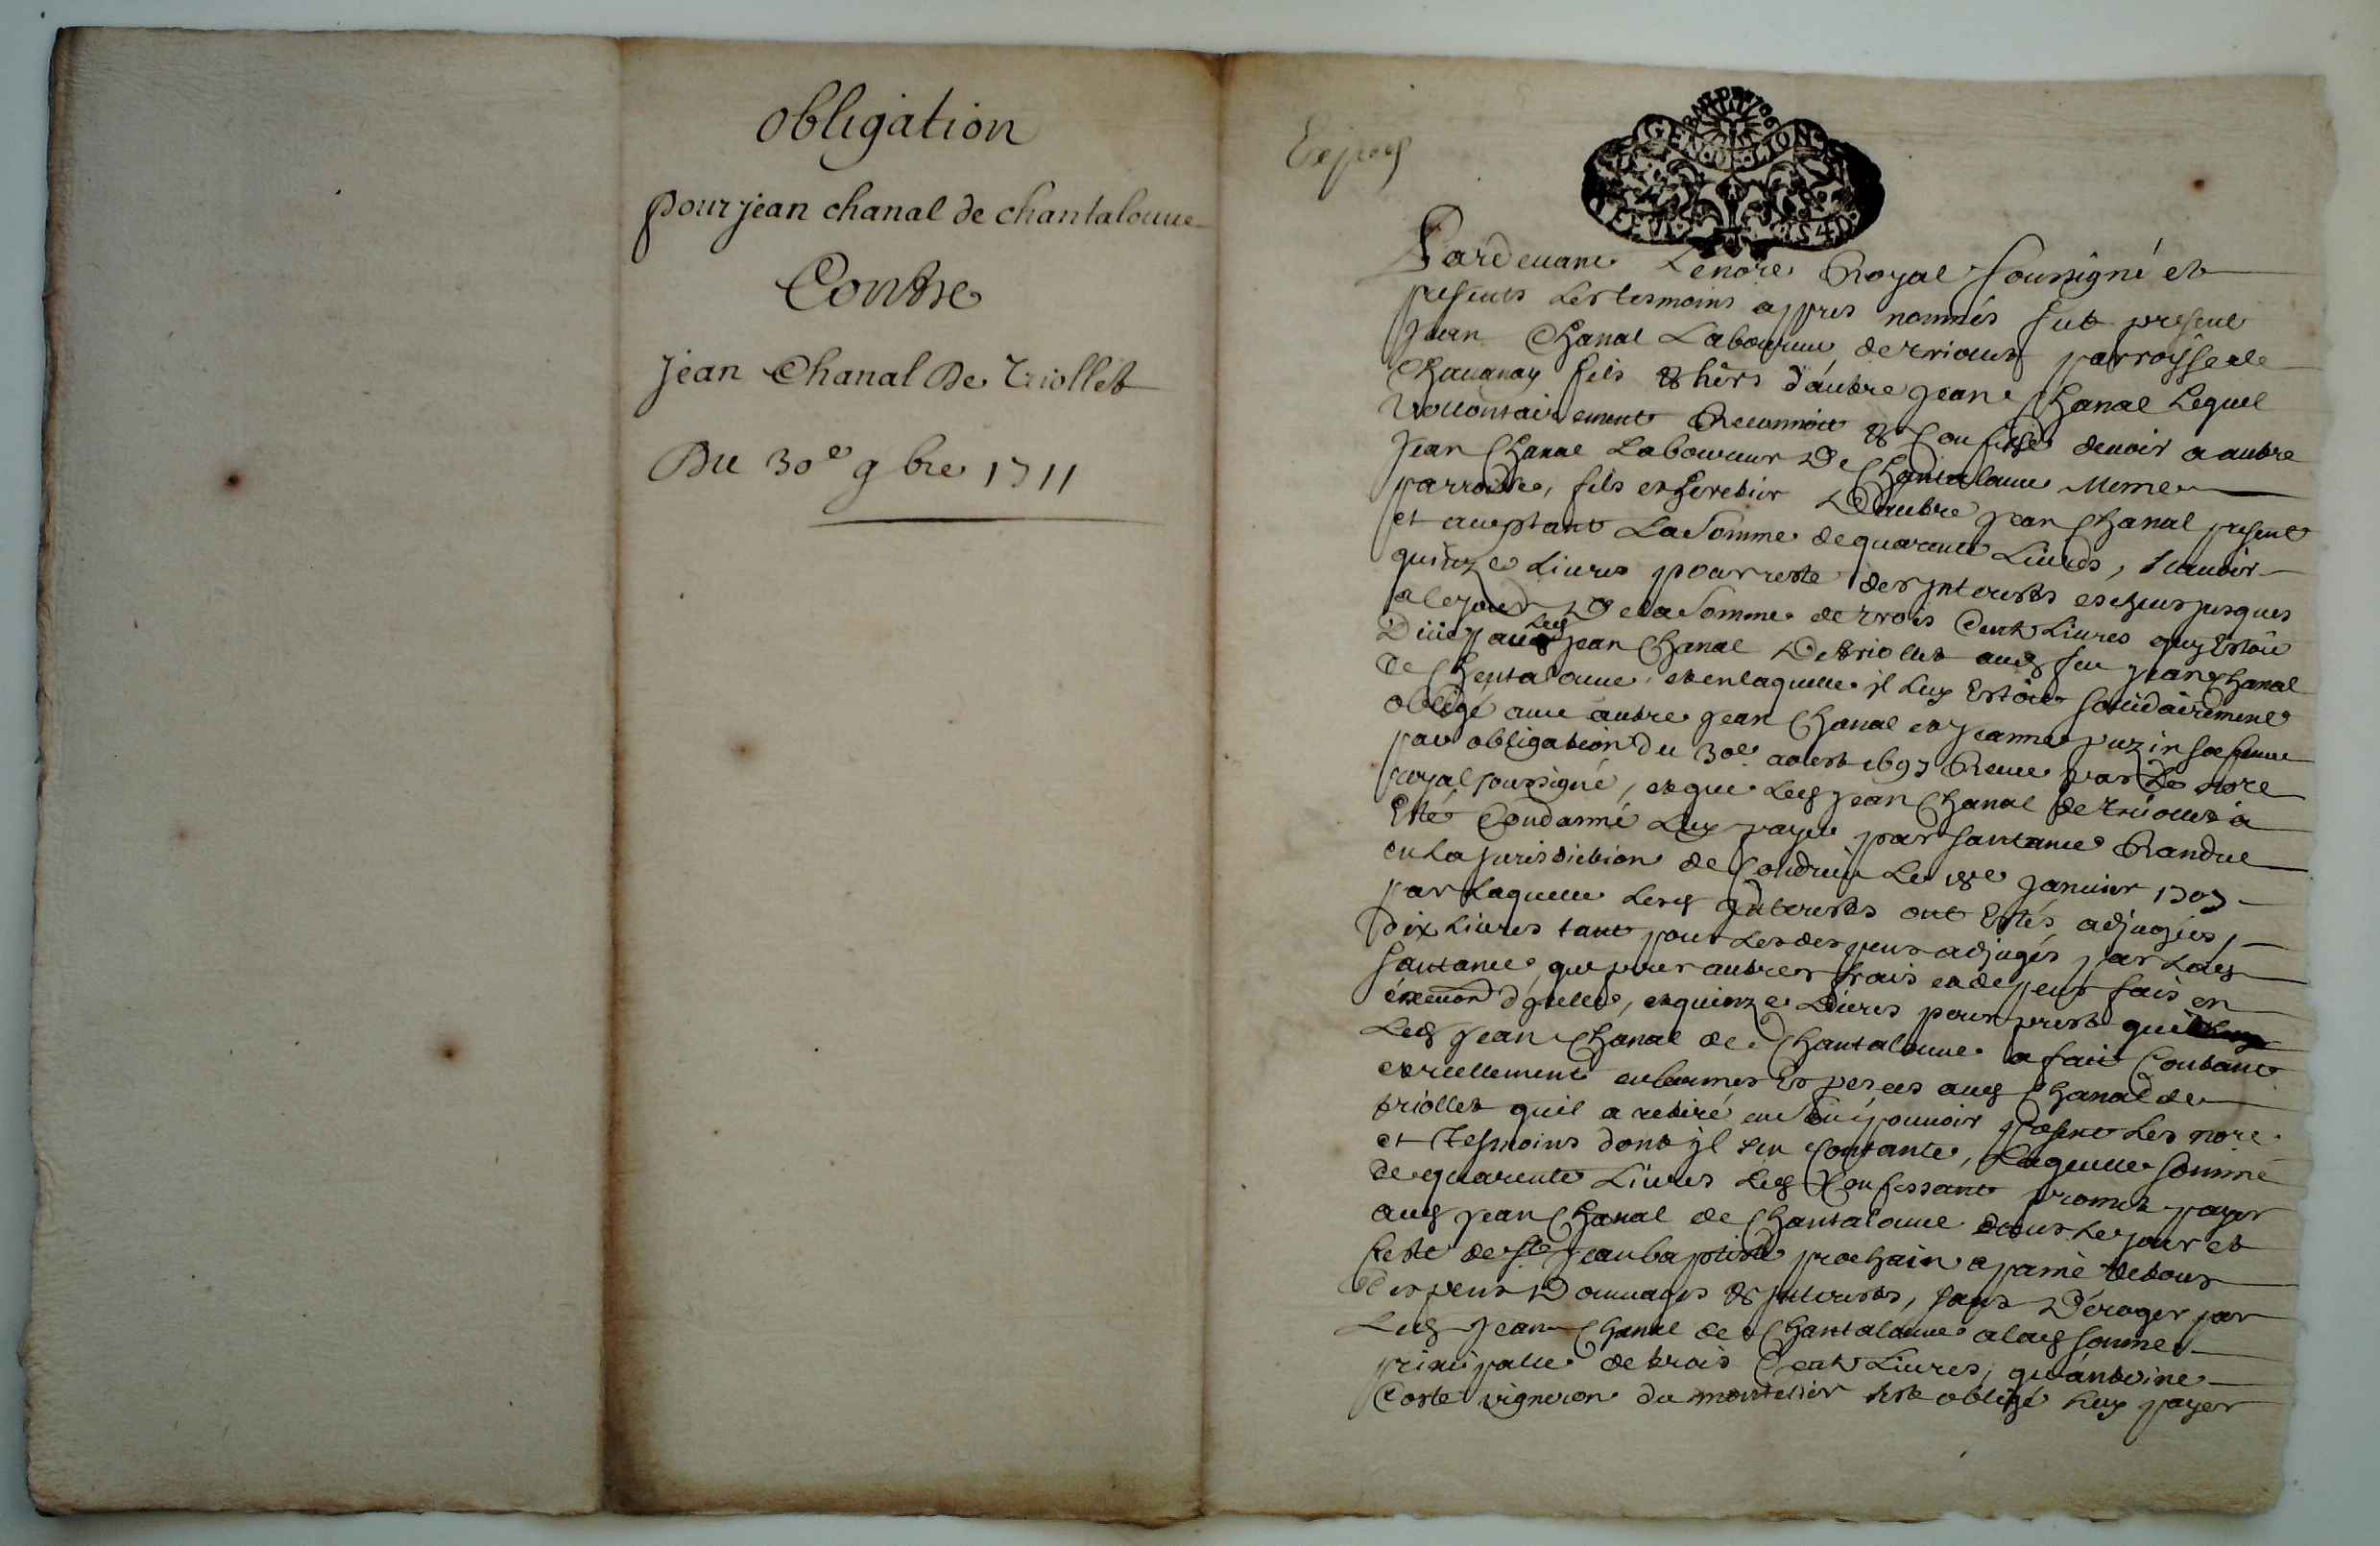 obligation
pour jean chanal de chantaloüue
Contre
jean Chanal De Triollet
Du 30e 9bre 1711
Expes
GENERALITE DE LION
Pardeuant Le nore Royal soussigné et
presents Les tesmoins appres nommés fut present
Jean Chanal Laboureur de triout parroisse de
Chauanay fils & hers d'autre jean Chanal Lequel
Vollontairement Reconnoit & Confesse deuoir a autre
Jean Chanal Laboureur De Chantaloüue Meme
parroisse, fils et heretier D'autre jean Chanal present
et acceptant La somme de quarente Liures, scauoir
quinze Liures pour reste des jnterests escheus jusques
a ce jour De la somme de trois Cent Liures quy Estoit
Düe par Led jean Chanal De triollet aud feu jean Chanal
de Chentaloüue, et en laquelle jl Luy Estoit solidairement
obligé auec autre jean Chanal et jeanne puzin sa femme
par obligation du 30e aoust 1697 Receue par Le nore
royal soussigné, et que Led jean Chanal de triollet a
Esté Condanné Luy payer par santance Randue
en La jurisdiction de Condrieu Le 18e januier 1707
par Laquelle Lesd jnterests ont Estés adjugés,
dix Liures tant pour Les despens adjugés par Lad
santance, que pour autres frais et depens fais en
execuon d'jcelle, et quinze Liures pour prest que
Led jean Chanal de Chantaloüue a fait Contant
et reellement en bonnes Especes aud Chanal de
triollet quil a retiré en son pouuoir present Les nore
et Tesmoins dont jl sen contante, Laquelle somme
de quarente Liures Led Confessant promet payer
aud jean Chanal de Chantaloüue dans Le jour et
feste de St Jean baptiste prochain a paine de tous
Despens Dommages & jnterests, sans Deroger par
Led jean Chanal de Chantaloüue a lad somme
principalle de trois Cent Liures, qu'antoine
Coste vigneron du montelier sest obligé Luy payer